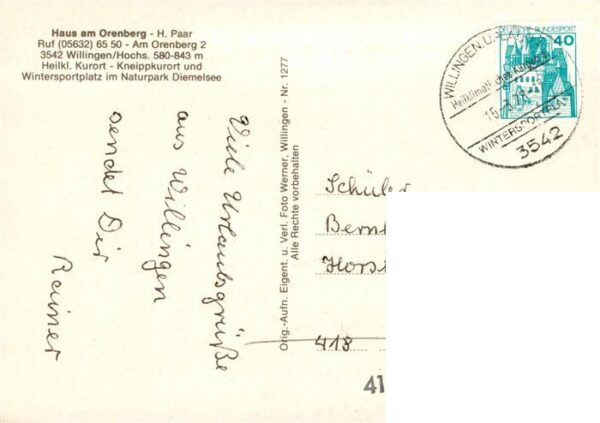 Haus am Orenberg - H. Paar
Ruf (05632) 65 50 - Am Orenberg 2
3542 Willingen/Hochs. 580-843 m
Heilkl. Kurort - Kneippkurort und
Wintersportplatz im Naturpark Diemelsee
Viele Urlaubsgrüße
aus Willingen
sendet Dir
Rainer
Orig.-Aufn. Eigent. u. Verl. Foto Werner, Willingen - Nr. 1277
Alle Rechte vorbehalten
DEUTSCHE BUNDESPOST
40
WILLINGEN
Heilklimatischer
WINTERSPORTPLATZ
3542
Schüler
Bernt
Horst
418
41